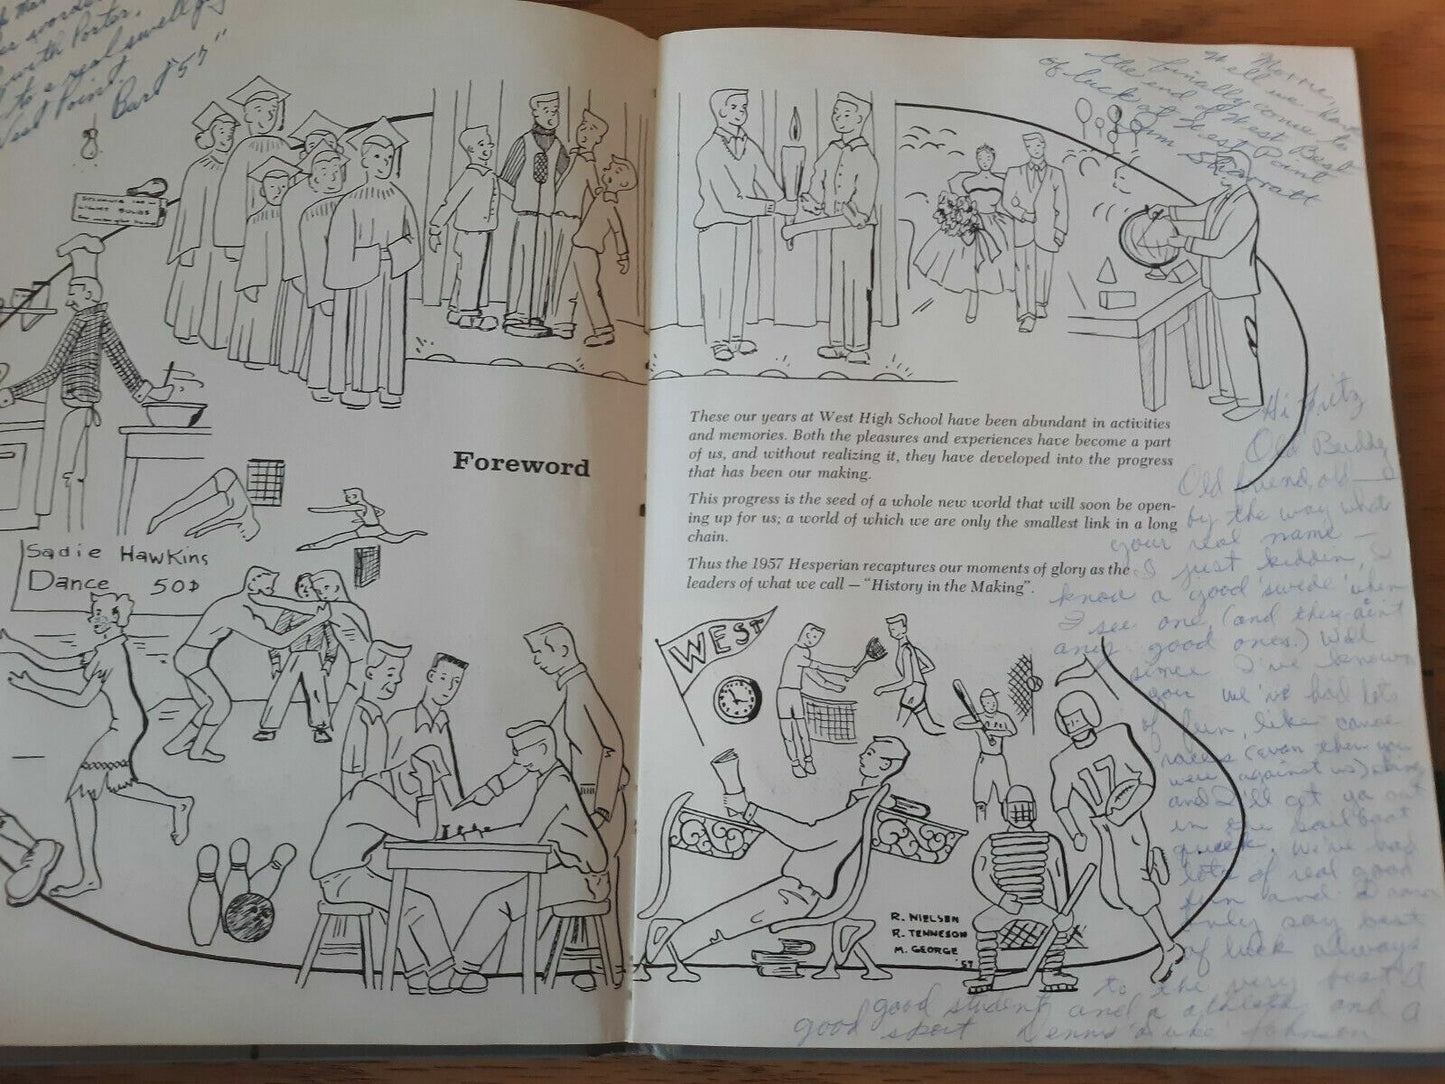 with Porter.
to a real swell guy
West Point
Bard "57"
Sadie Hawkins
Dance 50¢
Foreword
Well we have
finally come to
the end of West Best
of luck at West Point
These our years at West High School have been abundant in activities
and memories. Both the pleasures and experiences have become a part
of us, and without realizing it, they have developed into the progress
that has been our making.
This progress is the seed of a whole new world that will soon be open-
ing up for us; a world of which we are only the smallest link in a long
chain.
Thus the 1957 Hesperian recaptures our moments of glory as the
leaders of what we call — "History in the Making".
WEST
17
R. NIELSEN
R. TENNESON
M. GEORGE
'57
Hi Fritz
Old Buddy
Old friend, old —
by the way what
your real name —
I just kiddin, I
know a good 'swede' when
I see one, (and there ain't
any good ones.) Well
since I've known
you we've had lots
of fun, like canoe
races (even then you
were against us)
and I'll get ya out
in the sailboat
We've had
lots of real good
fun and I
only say best
of luck always
to the very best
good student and a athlete and a
good sport Dennis "Duke" Johnson